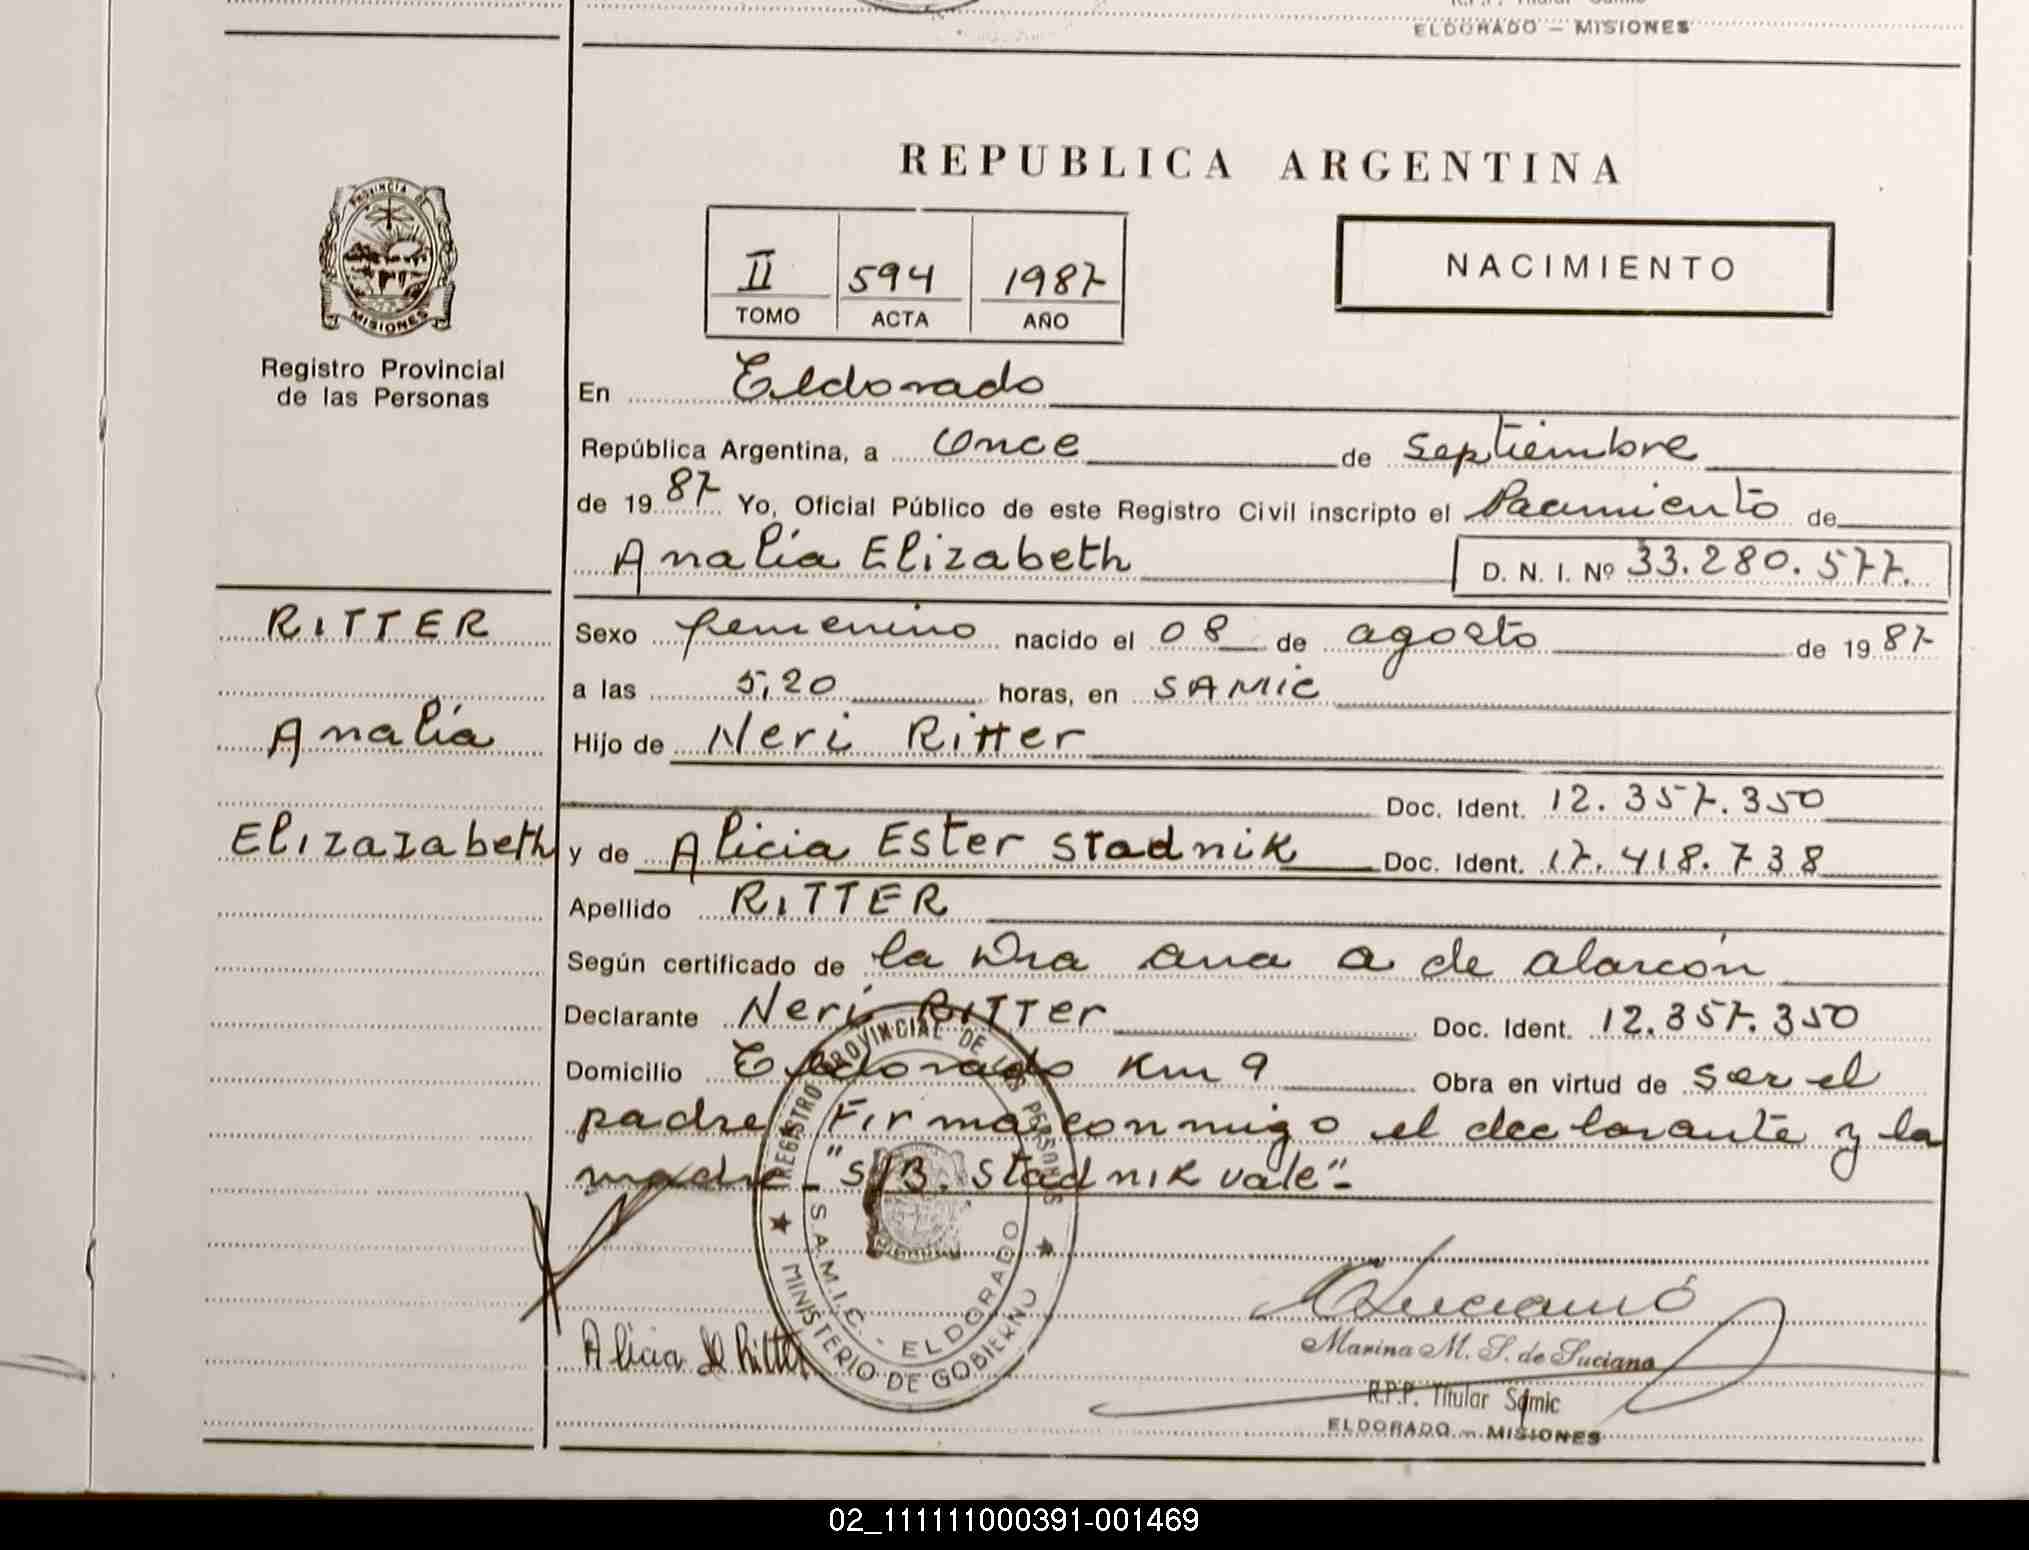 ELDORADO — MISIONES
REPUBLICA ARGENTINA
PROVINCIA DE
MISIONES
Registro Provincial
de las Personas
II 594 1987
TOMO ACTA AÑO
NACIMIENTO
En Eldorado
República Argentina, a Once de Septiembre
de 1987 Yo, Oficial Público de este Registro Civil inscripto el Nacimiento de
Analía Elizabeth D. N. I. Nº 33.280.577.
RITTER
Analía
Elizazabeth
Sexo femenino nacido el 08 de agosto de 1987
a las 5,20 horas, en SAMIC
Hijo de Neri Ritter
Doc. Ident. 12.357.350
y de Alicia Ester Stadnik Doc. Ident. 17.418.738
Apellido RITTER
Según certificado de la Dra Ana A de Alarcón
Declarante Neri RITTer Doc. Ident. 12.357.350
Domicilio Eldorado Km 9 Obra en virtud de ser el
padre Firma conmigo el declarante y la
madre - "S/B. Stadnik vale"-
REGISTRO PROVINCIAL DE LAS PERSONAS
S.A.M.I.C. - ELDORADO
MINISTERIO DE GOBIERNO
Alicia Ritter
Marina M. S. de Luciano
R.P.P. Titular Samic
ELDORADO — MISIONES
02_111111000391-001469